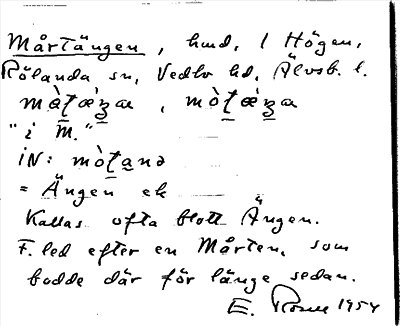 Mårtängen, hmd, 1 Högen,
Rölanda sn, Vedbo hd, Älvsb. l.
"i M."
iN:
= Ängen ek
Kallas ofta blott Ängen.
F. led efter en Mårten, som
bodde där för länge sedan.
E. 1954